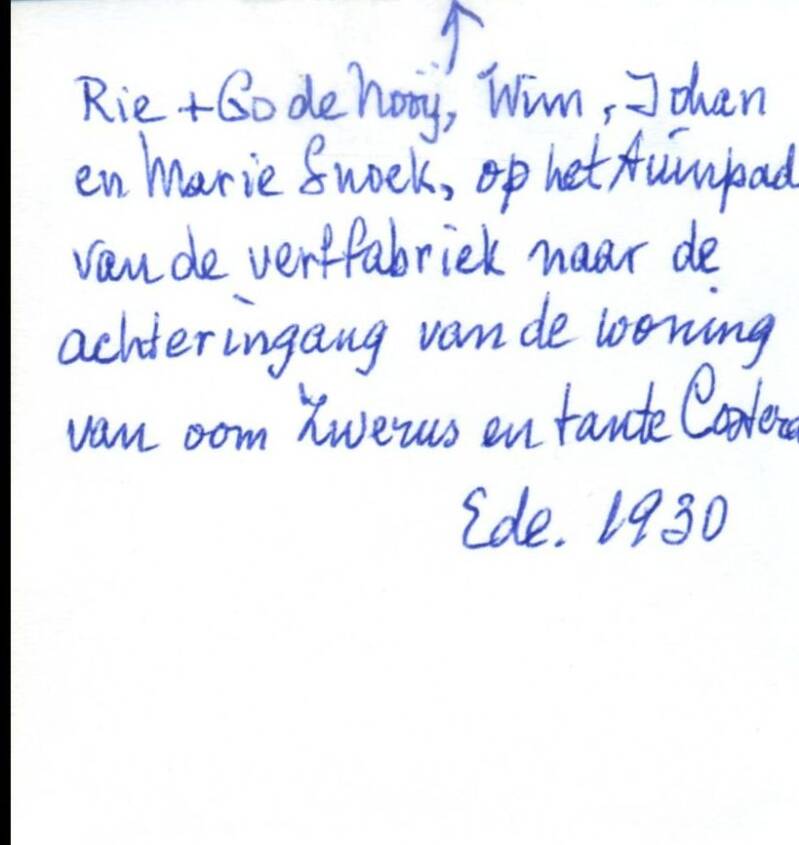 Rie + Go de Nooij, Wim, Johan
en Marie Snoek, op het tuinpad
van de verffabriek naar de
achteringang van de woning
van oom Zwerus en tante
Ede. 1930